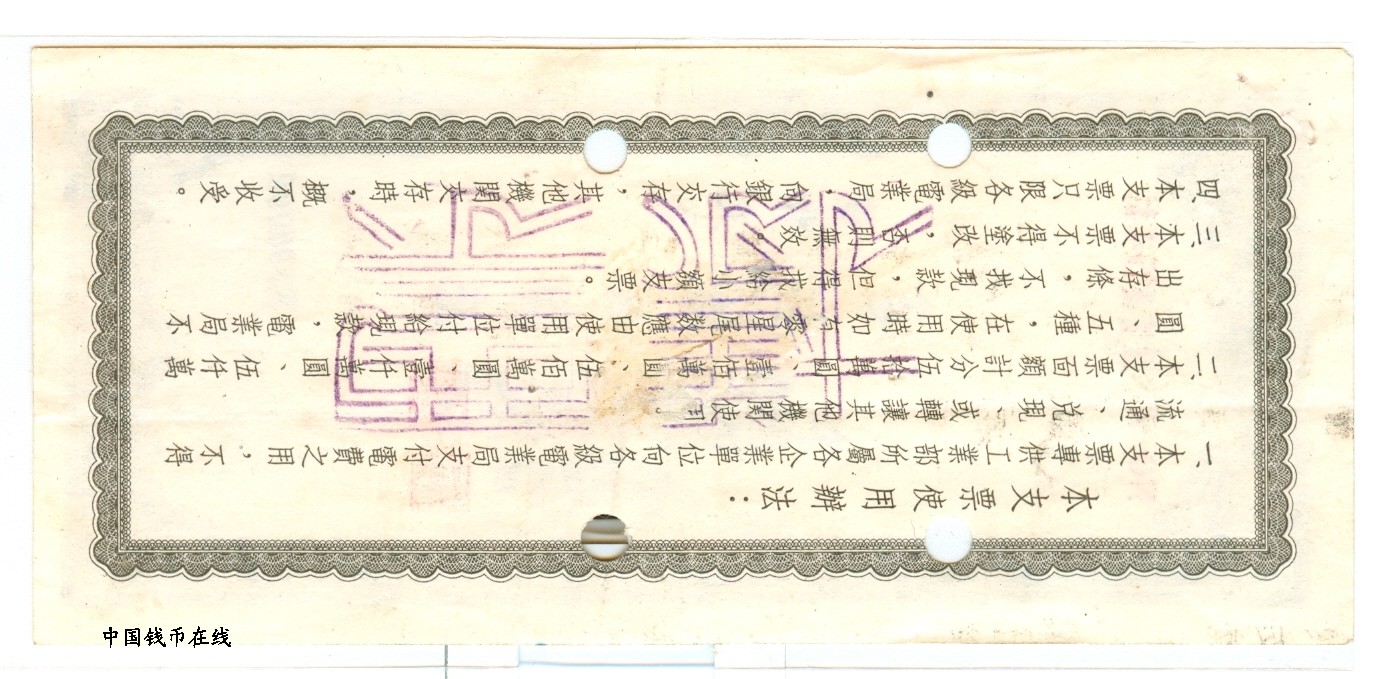 本支票使用辦法：
一、本支票專供工業部所屬各企業單位向各級電業局支付電費之用，不得
流通、兌現、或轉讓其他機關使用。
二、本支票面額計分伍拾萬圓、壹佰萬圓、伍佰萬圓、壹仟萬圓、伍仟萬
圓、五種，在使用時如有零星尾数應由使用單位付給現款，電業局不
出存條，不找現款，但得找給小額支票。
三、本支票不得塗改，否則無效。
四、本支票只限各級電業局，向銀行交存，其他機關交存時，概不收受。
中国钱币在线